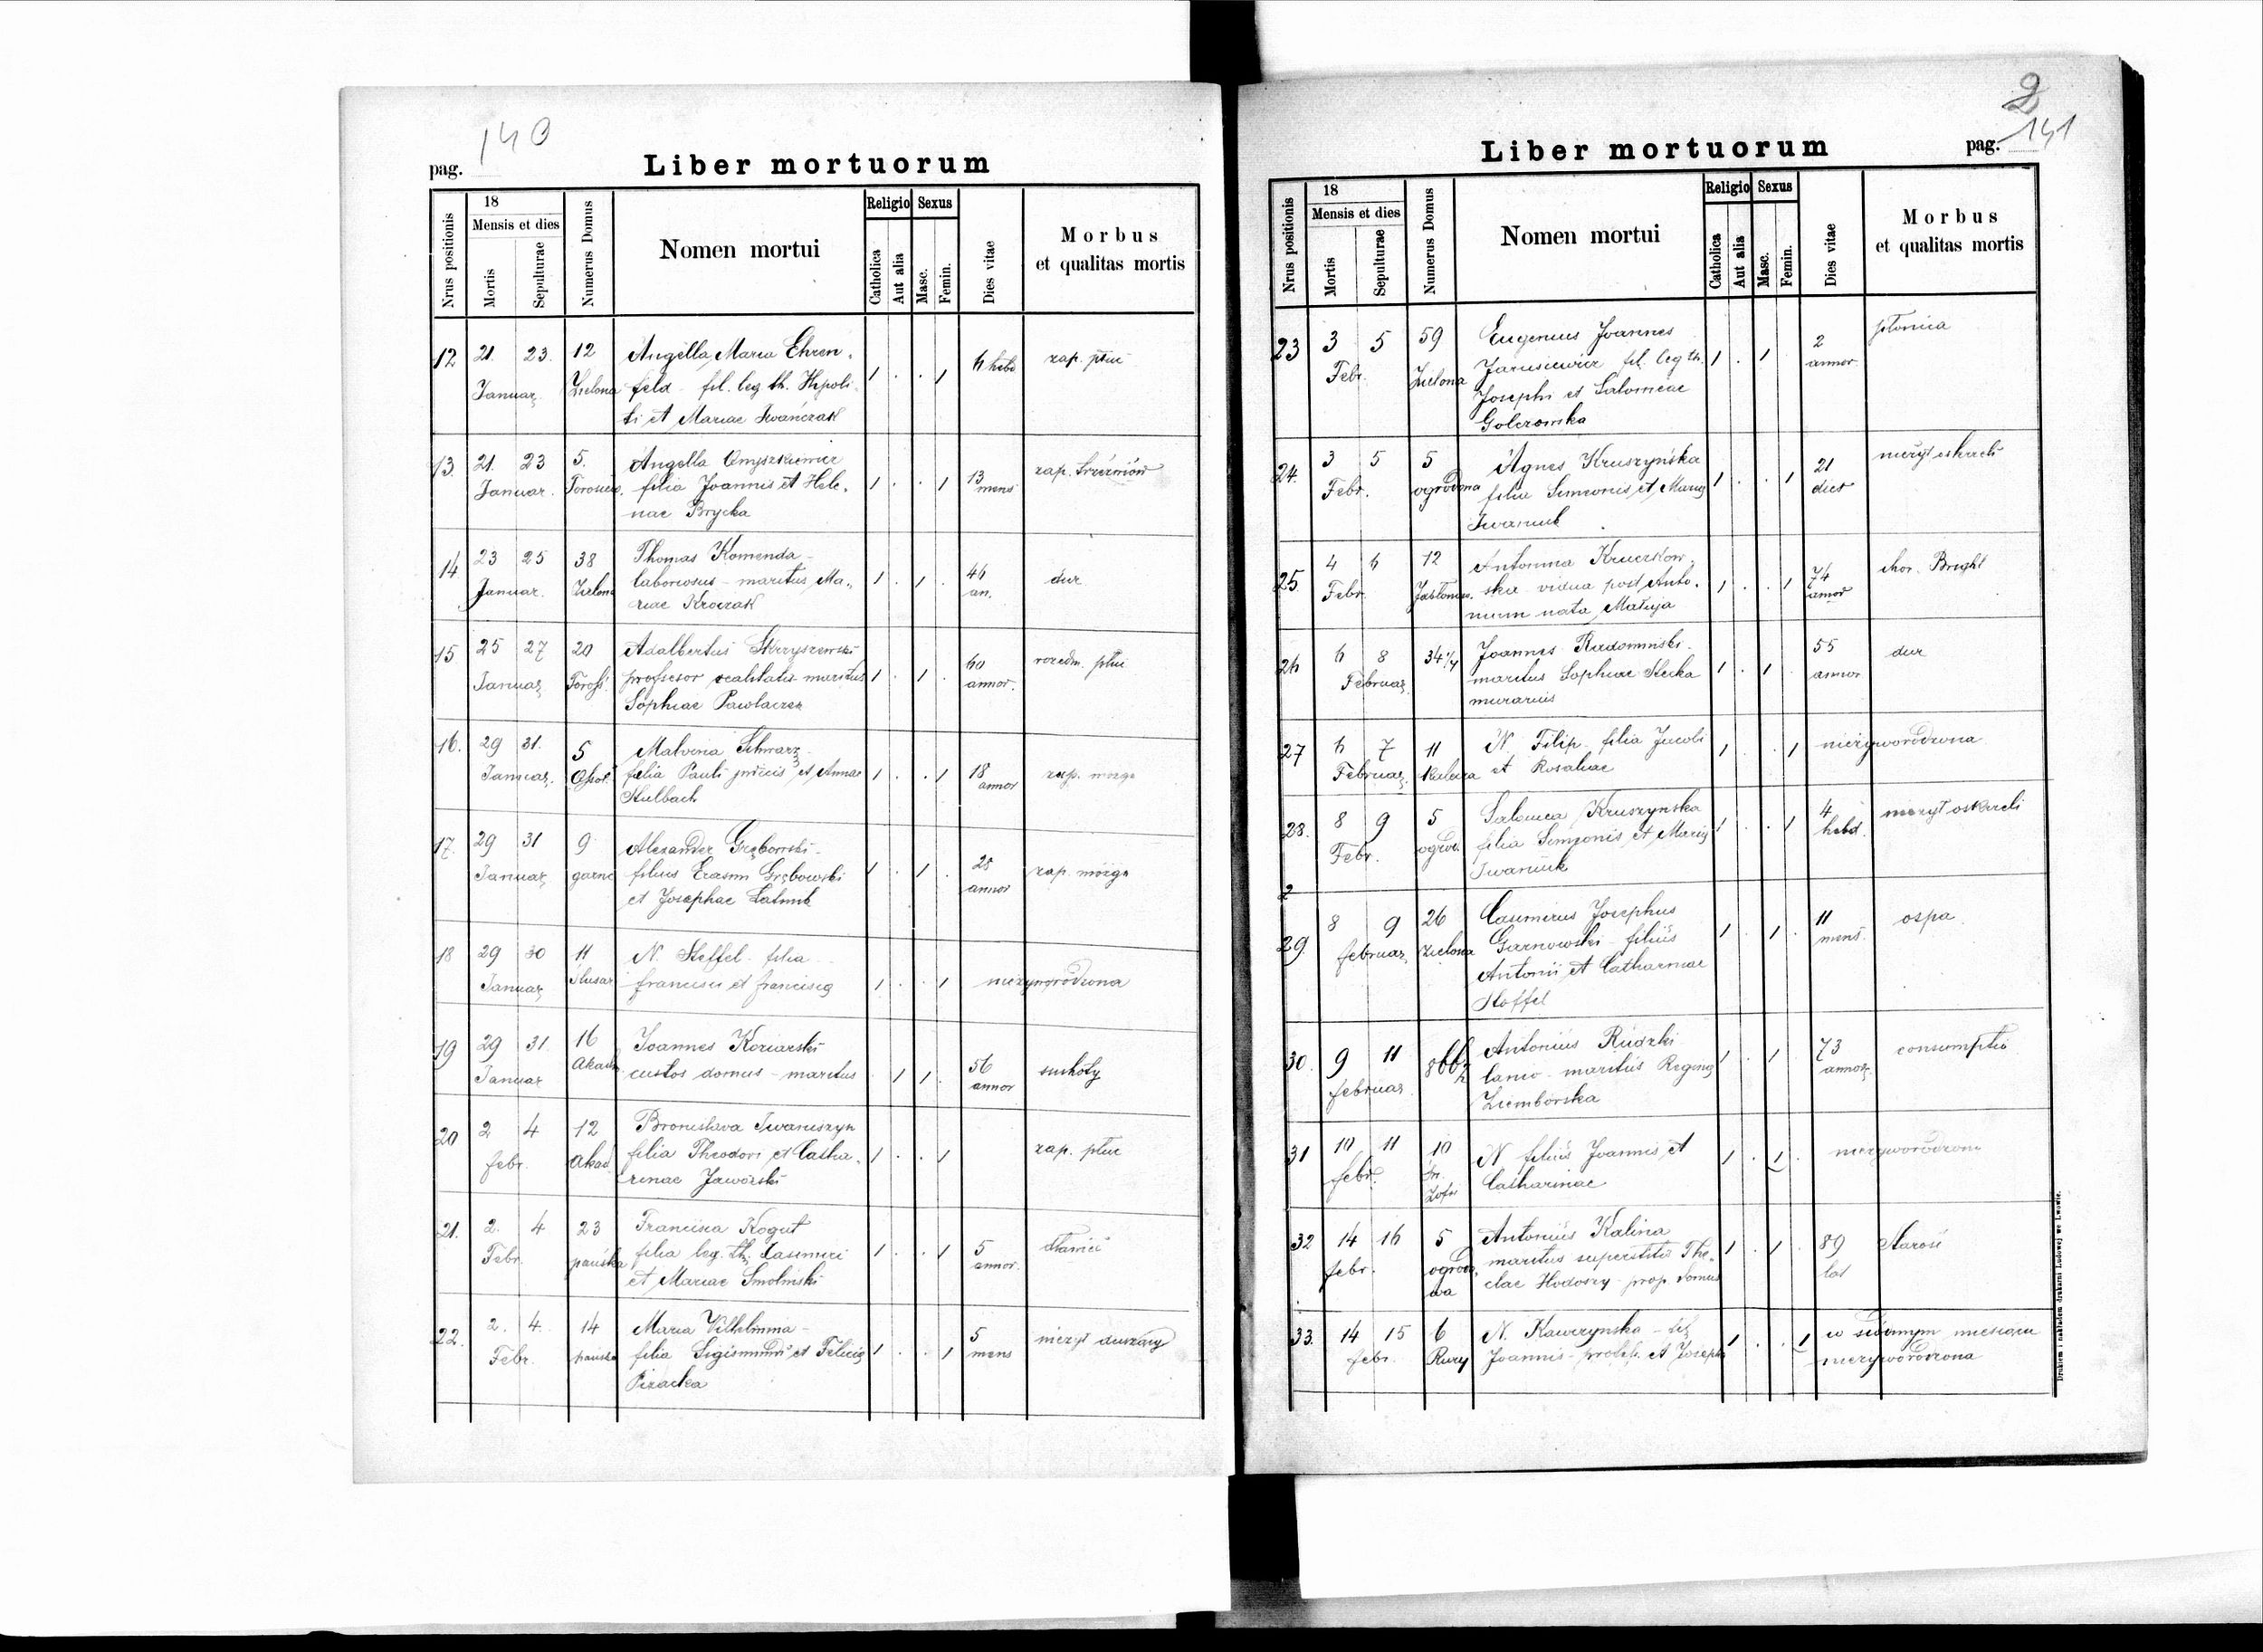 140
pag.
Liber mortuorum
Nrus positionis
18
Mensis et dies
Mortis
Sepulturae
Numerus Domus
Nomen mortui
Religio
Catholica
Aut alia
Sexus
Masc.
Femin.
Dies vitae
Morbus
et qualitas mortis
12 21. 23. 12 Angella Maria Ehren-
Januar. Zielona feld fil. leg th. Hipoli- 1 . . 1 6 hebd zap. płuc
ti et Mariae Iwańczak
13 21. 23 5. Angella
Januar. filia Joannis et Hele- 1 . . 1 13 mens zap.
nae Brycka
14 23 25 38 Thomas Komenda -
Januar. Zielona laboriosus - maritus Ma- 1 . 1 . 46 an. dur
riae Kroczak
15 25 27 20 Adalbertus Skrzyszewski
Januar. professor realitatis maritus 1 . 1 . 60 annor. rozedm. płuc
Sophiae Pawłaczek
16. 29 31. 5 Malvina Schwarz
Januar. filia Pauli et Annae 1 . . 1 18 annor zap. mózgu
Stulbach
17. 29 31 9 Alexander Grębowski -
Januar. garnc filius Erasmi Grębowski 1 . 1 . 28 annor zap. mózgu
et Josephae
18 29 30 11 N. Steffel filia
Januar. Francisci et Francisca 1 . . 1 nieżyworodzona
19 29 31. 16 Joannes Koziarski
Januar Akad custos domus - maritus . 1 1 . 56 annor suchoty
20 2 4 12 Bronislava Iwaniszyn
febr. Akad filia Theodori et Catha- 1 . . 1 zap. płuc
rinae Jaworski
21. 2. 4 23 Francisca Kogut
Febr. pańska filia leg. th. Casimiri 1 . . 1 5 annor. dławiec
et Mariae Smolniski
22. 2. 4. 14 Maria Vilhelmina -
Febr. pańska filia Sigismundi et Felicia 1 . . 1 5 mens nieżyt duszący
Pizacka
2
141
Liber mortuorum
pag.
Nrus positionis
18
Mensis et dies
Mortis
Sepulturae
Numerus Domus
Nomen mortui
Religio
Catholica
Aut alia
Sexus
Masc.
Femin.
Dies vitae
Morbus
et qualitas mortis
23 3 5 59 Eugenius Joannes
Febr. Zielona Janusiewicz fil. leg th. 1 . 1 2 annor. płonica
Josephi et Salomeae
Golczowska
24. 3 5 5 Agnes Kruszyńska
Febr. ogrodowa filia Simeonis et Maria 1 . . 1 21 dies nieżyt oskrzeli
Iwaniuk
25. 4 6 12 Antonina Kruczkow-
Febr. ska vidua post Anto- 1 . . 1 74 annor chor. Bright
nium nata Matyja
26 6 8 34 1/4 Joannes Radominski
Februar. maritus Sophiae Stecka 1 . 1 . 55 annor dur
murarius
27 6 7 11 N. Filip filia Jacobi
Februar. et Rosaliae 1 . 1 nieżyworodzona
28. 8 9 5 Salomea Kruszynska
Febr. ogrod. filia Simeonis et Maria 1 . . 1 4 hebd. nieżyt oskrzeli
Iwaniuk
2
29. 8 9 26 Casimirus Josephus
februar. Zielona Garnowski - filius 1 . 1 . 11 mens. ospa
Antonii et Catharinae
Stoffel
30. 9 11 866 1/2 Antonius Rudzki
februar lanio - maritus Regina 1 . 1 . 73 annor. consumptio
Ziemborska
31 10 11 10 N filius Joannis et
febr. Św. Zofii Catharinae 1 . 1 . nieżyworodzony
32 14 16 5 Antonius Kalina
febr. ogrodo- maritus superstitis The- 1 . 1 . 89 lat Starość
wa clae Hodoszy prop. domus
33. 14 15 6 N. Kawczynska - fil. w siódmym miesiącu
febr. Rury Joannis profess. et Josepha 1 . . 1 nieżyworodzona
Drukiem i nakładem drukarni Ludowej we Lwowie.